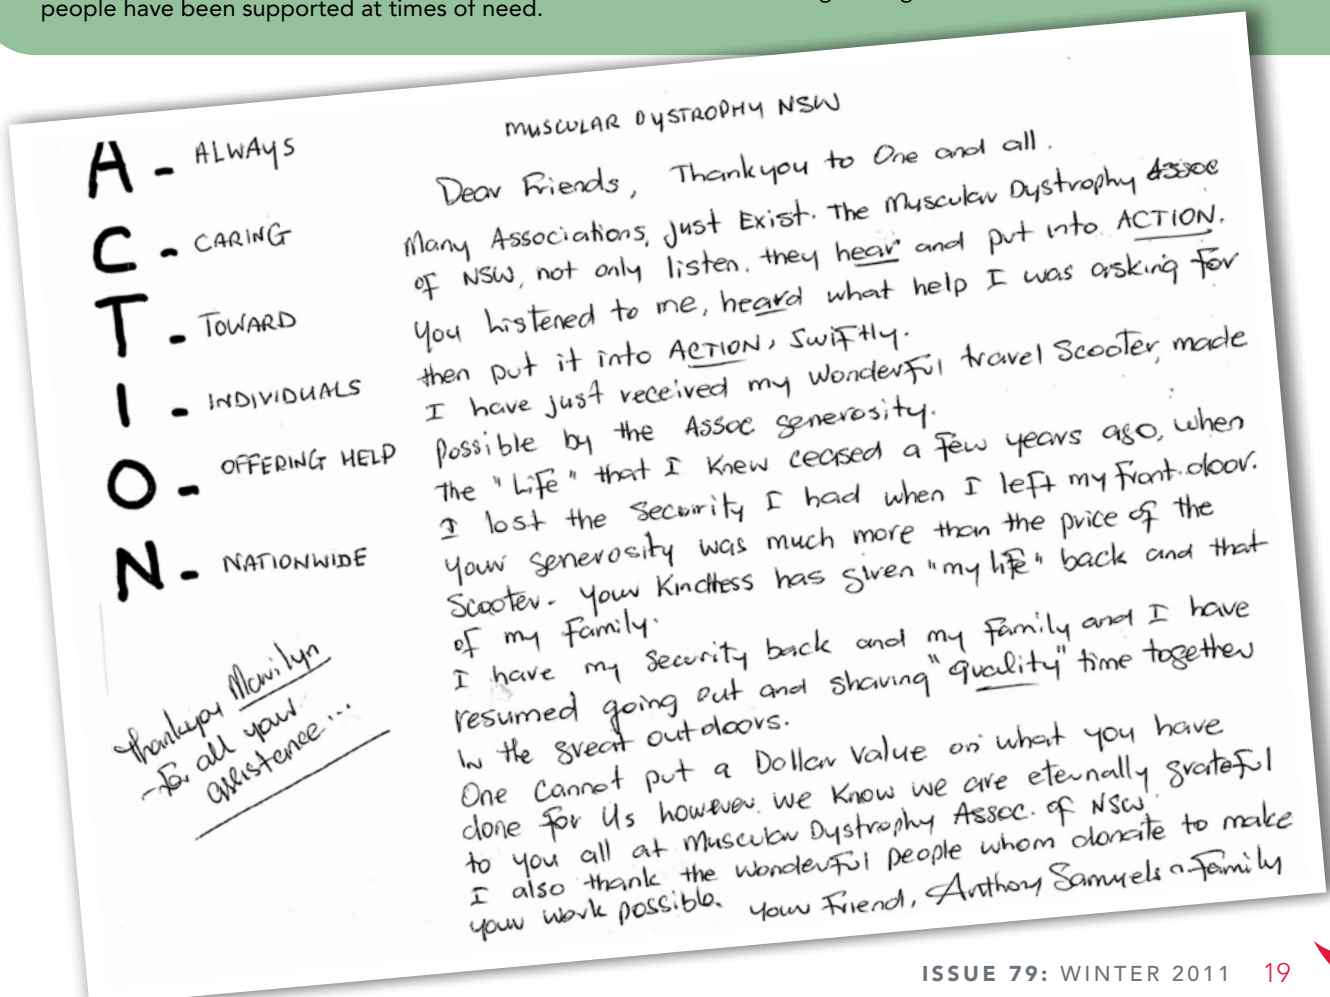 people have been supported at times of need.
A - ALWAYS
C - CARING
T - TOWARD
I - INDIVIDUALS
O - OFFERING HELP
N - NATIONWIDE
Thankyou Marilyn
for all your
assistence...
MUSCULAR DYSTROPHY NSW
Dear Friends, Thankyou to One and all.
Many Associations, just Exist. The Muscular Dystrophy Assoc
of NSW, not only listen, they hear and put into ACTION.
You listened to me, heard what help I was asking for
then put it into ACTION, Swiftly.
I have just received my wonderful travel Scooter, made
possible by the Assoc generosity.
The "Life" that I knew ceased a few years ago, when
I lost the Security I had when I left my front door.
Your generosity was much more than the price of the
Scooter. Your Kindness has given "my life" back and that
of my Family.
I have my Security back and my Family and I have
resumed going out and shaving "quality" time together
In the great outdoors.
One Cannot put a Dollar Value on what you have
done for Us however. we Know we are eternally grateful
to you all at Muscular Dystrophy Assoc. of NSW.
I also thank the wonderful people whom donate to make
your work possible. Your Friend, Anthony Samuels n Family
ISSUE 79: WINTER 2011 19